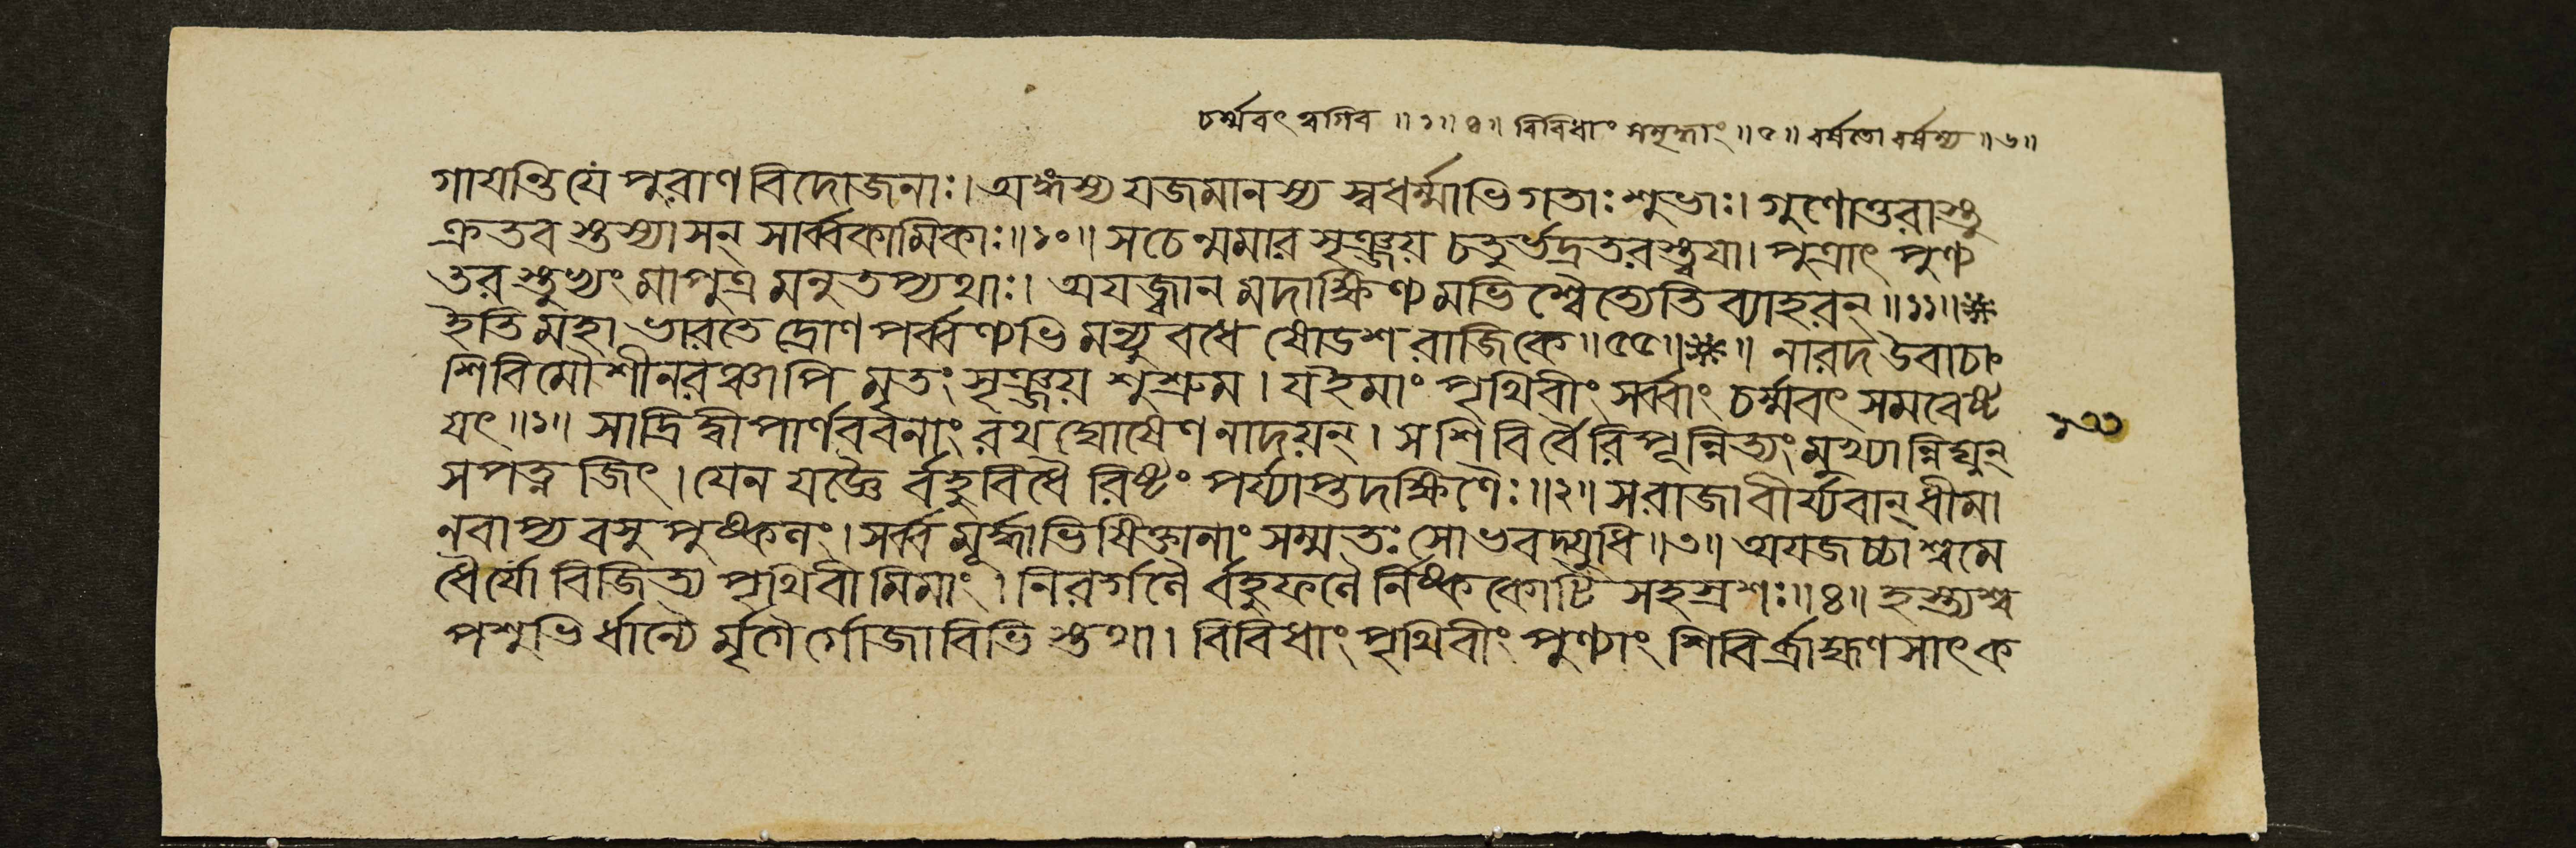 চর্ম্মবৎ ত্বগিব ॥১॥৪॥ বিবিধাং ॥৫॥ বর্ষতো বর্ষস্য ॥৬॥
গায়ন্তি যে পুরাণ বিদোজনাঃ। অঙ্গস্য যজমানস্য স্বধর্ম্মাভিগতাঃ শুভাঃ। গুণোত্তরাস্তু
ক্রতবস্তস্যাসন্ সার্ব্বকামিকাঃ॥১০॥ সচেন্মমার সৃঞ্জয় চতুর্ভদ্রতরস্ত্বয়া। পুত্রাৎ পুণ্য
তরস্তুভ্যং মাপুত্র মনুতপ্যথাঃ। অযজ্বান মদাক্ষিণ্য মভিশ্বৈত্যেতিব্যাহরন্॥১১॥
ইতি মহাভারতে দ্রোণপর্ব্বণ্যভিমন্যুবধে ষোডশরাজিকে॥৫৫॥ ॥ নারদ উবাচাং
শিবিমৌশীনরঞ্চাপি মৃতং সৃঞ্জয় শুশ্রুম। যইমাং পৃথিবীং সর্ব্বাং চর্ম্মবৎ সমবেষ্ট
য়ৎ॥১॥ সাদ্রিদ্বীপার্ণববনাং রথঘোষেণ নাদয়ন্। সশিবির্বৈরিপূন্নিত্যং মুখ্যান্নিঘ্নন্
সপত্নজিৎ। যেন যজ্ঞৈ র্বহুবিধৈ রিষ্টং পর্য্যাপ্তদক্ষিণৈঃ॥২॥ সরাজা বীর্য্যবান্ ধীমা
নবাপ্য বসু পুষ্কলং। সর্ব্বমূর্দ্ধাভিষিক্তানাং সম্মতঃ সোভবদ্যুধি॥৩॥ অযজচ্চাশ্বমে
ধৈর্যো বিজিত্য পৃথিবীমিমাং। নিরর্গলৈ র্বহুফলৈ র্নিষ্ককোটি সহস্রশঃ॥৪॥ হস্ত্যশ্ব
পশুভির্ধান্যৈ র্মৃগৈর্গোজাবিভিস্তথা। বিবিধাং পৃথিবীং পুণ্যাং শিবির্ব্রাহ্মণসাৎক